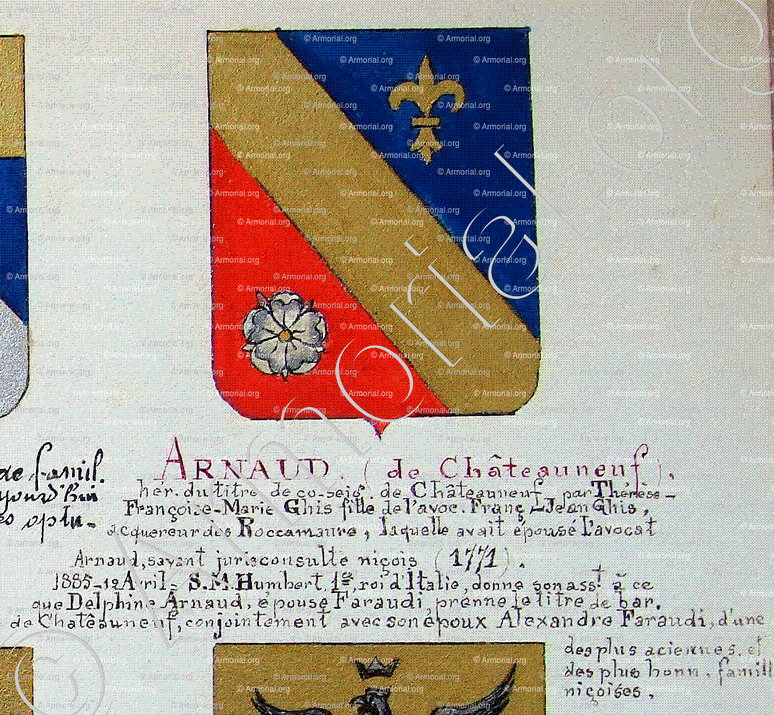 de famil.
ARNAUD. (de Châteauneuf).
hér. du titre de co-seig. de Châteauneuf, par Thérèse-
Françoise-Marie Ghis fille de l'avoc. Franç-Jean Ghis,
acquereur des Roccamaura, laquelle avait épousé l'avocat
Arnaud, savant jurisconsulte niçois (1771).
1885-12 Avril- S.M. Humbert, 1er, roi d'Italie, donne son asst à ce
que Delphine Arnaud, épouse Faraudi, prenne le titre de bar.
de Châteauneuf, conjointement avec son époux Alexandre Faraudi, d'une
des plus aciennes, et
des plus honn. famill
niçoises.
© Armorial.org